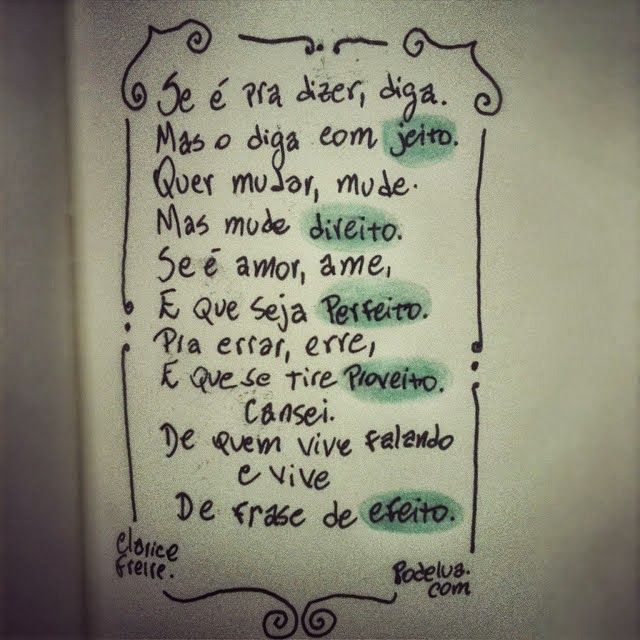 Se é pra dizer, diga.
Mas o diga com jeito.
Quer mudar, mude.
Mas mude direito.
Se é amor, ame,
E que seja Perfeito.
Pra errar, erre,
E que se tire Proveito.
Cansei.
De quem vive falando
e vive
De frase de efeito.
Clarice
Freire.
Podelua.
com